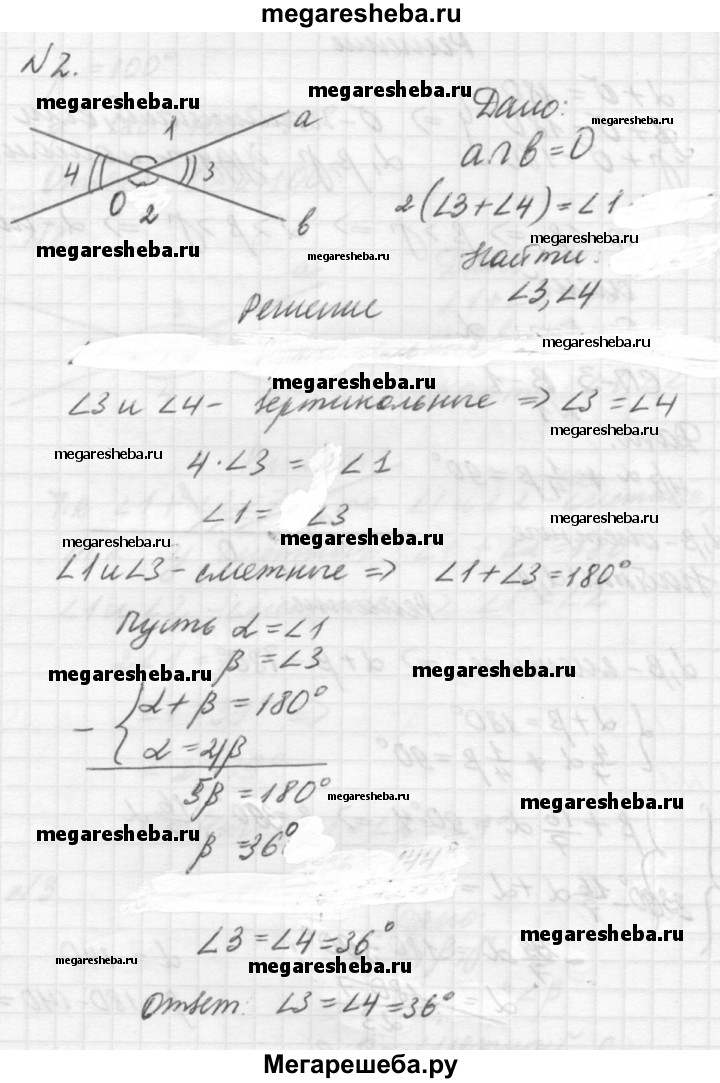 megaresheba.ru
N2.
megaresheba.ru
megaresheba.ru
Дано:
megaresheba.ru
1
a
a∩b=O
4
3
O
2
b
2(∠3+∠4)=∠1
megaresheba.ru
megaresheba.ru
megaresheba.ru
Найти:
∠3,∠4
Решение
megaresheba.ru
megaresheba.ru
∠3 и ∠4 - вертикольные ⇒ ∠3 = ∠4
megaresheba.ru
megaresheba.ru
4·∠3 = ∠1
∠1 = ∠3
megaresheba.ru
megaresheba.ru
megaresheba.ru
∠1 и ∠3 - смежные ⇒ ∠1+∠3=180°
Пусть α=∠1
β=∠3
megaresheba.ru
megaresheba.ru
α+β=180°
- {
α=4β
5β=180°
megaresheba.ru
megaresheba.ru
megaresheba.ru
β=36°
144°
∠3=∠4=36°
megaresheba.ru
megaresheba.ru
megaresheba.ru
Ответ: ∠3=∠4=36°
Мегарешеба.ру